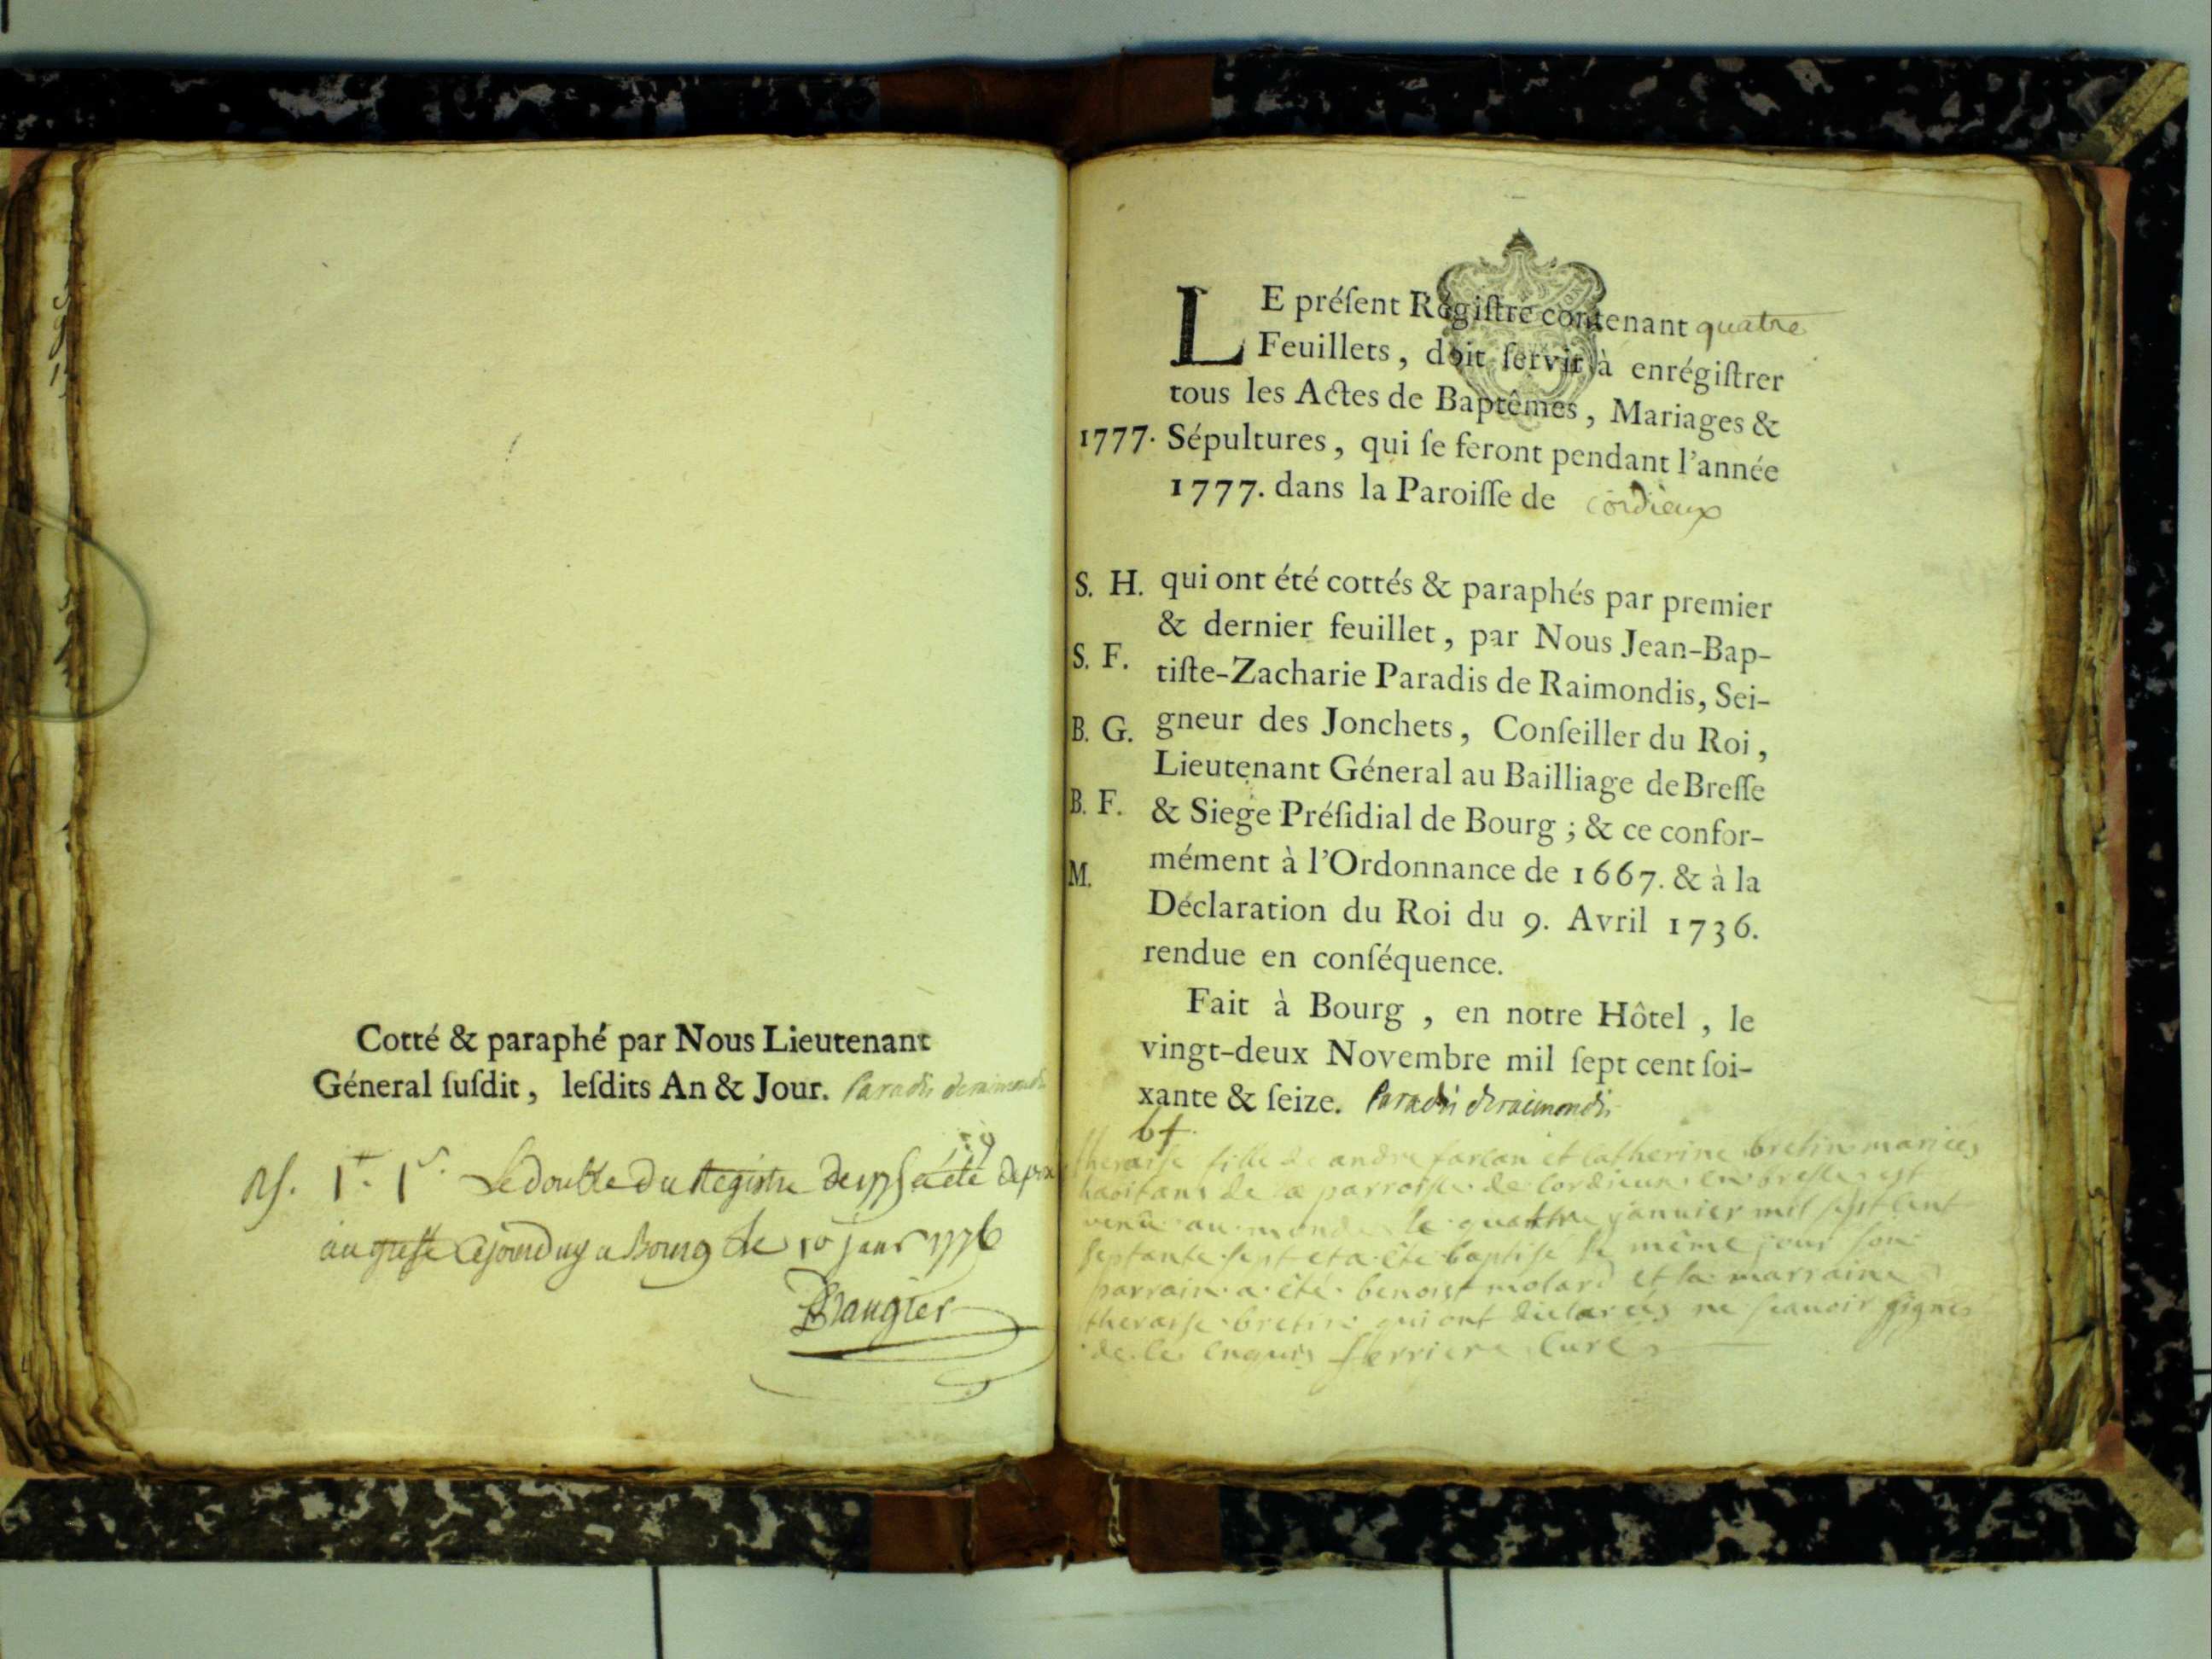 Cotté & paraphé par Nous Lieutenant
Géneral ſuſdit, leſdits An & Jour. Paradis deraimondis
Le double du Registre de a été
au greffe ce jourduy a Bourg le 10 janr 1776
LE préſent Régiſtre contenant quatre
Feuillets, doit ſervir à enrégiſtrer
tous les Actes de Baptêmes, Mariages &
1777. Sépultures, qui ſe feront pendant l'année
1777. dans la Paroiſſe de cordieux
S. H. qui ont été cottés & paraphés par premier
& dernier feuillet, par Nous Jean-Bap-
S. F. tiſte-Zacharie Paradis de Raimondis, Sei-
B. G. gneur des Jonchets, Conſeiller du Roi,
Lieutenant Géneral au Bailliage de Breſſe
B. F. & Siege Préſidial de Bourg ; & ce confor-
M. mément à l'Ordonnance de 1667. & à la
Déclaration du Roi du 9. Avril 1736.
rendue en conſéquence.
Fait à Bourg, en notre Hôtel, le
vingt-deux Novembre mil ſept cent ſoi-
xante & ſeize. Paradis deraimondis
bf.
theraise fille de andre farlan et catherine bretin mariés
habitans de la parroisse de cordieux en bresse est
venu au monde le quattre janvier mil sept cent
septante sept et a été baptisé le même jour son
parrain a été benoist molard et la marraine
theraise bretin qui ont déclarés ne scavoir signés
de ce enquis ferriere curé